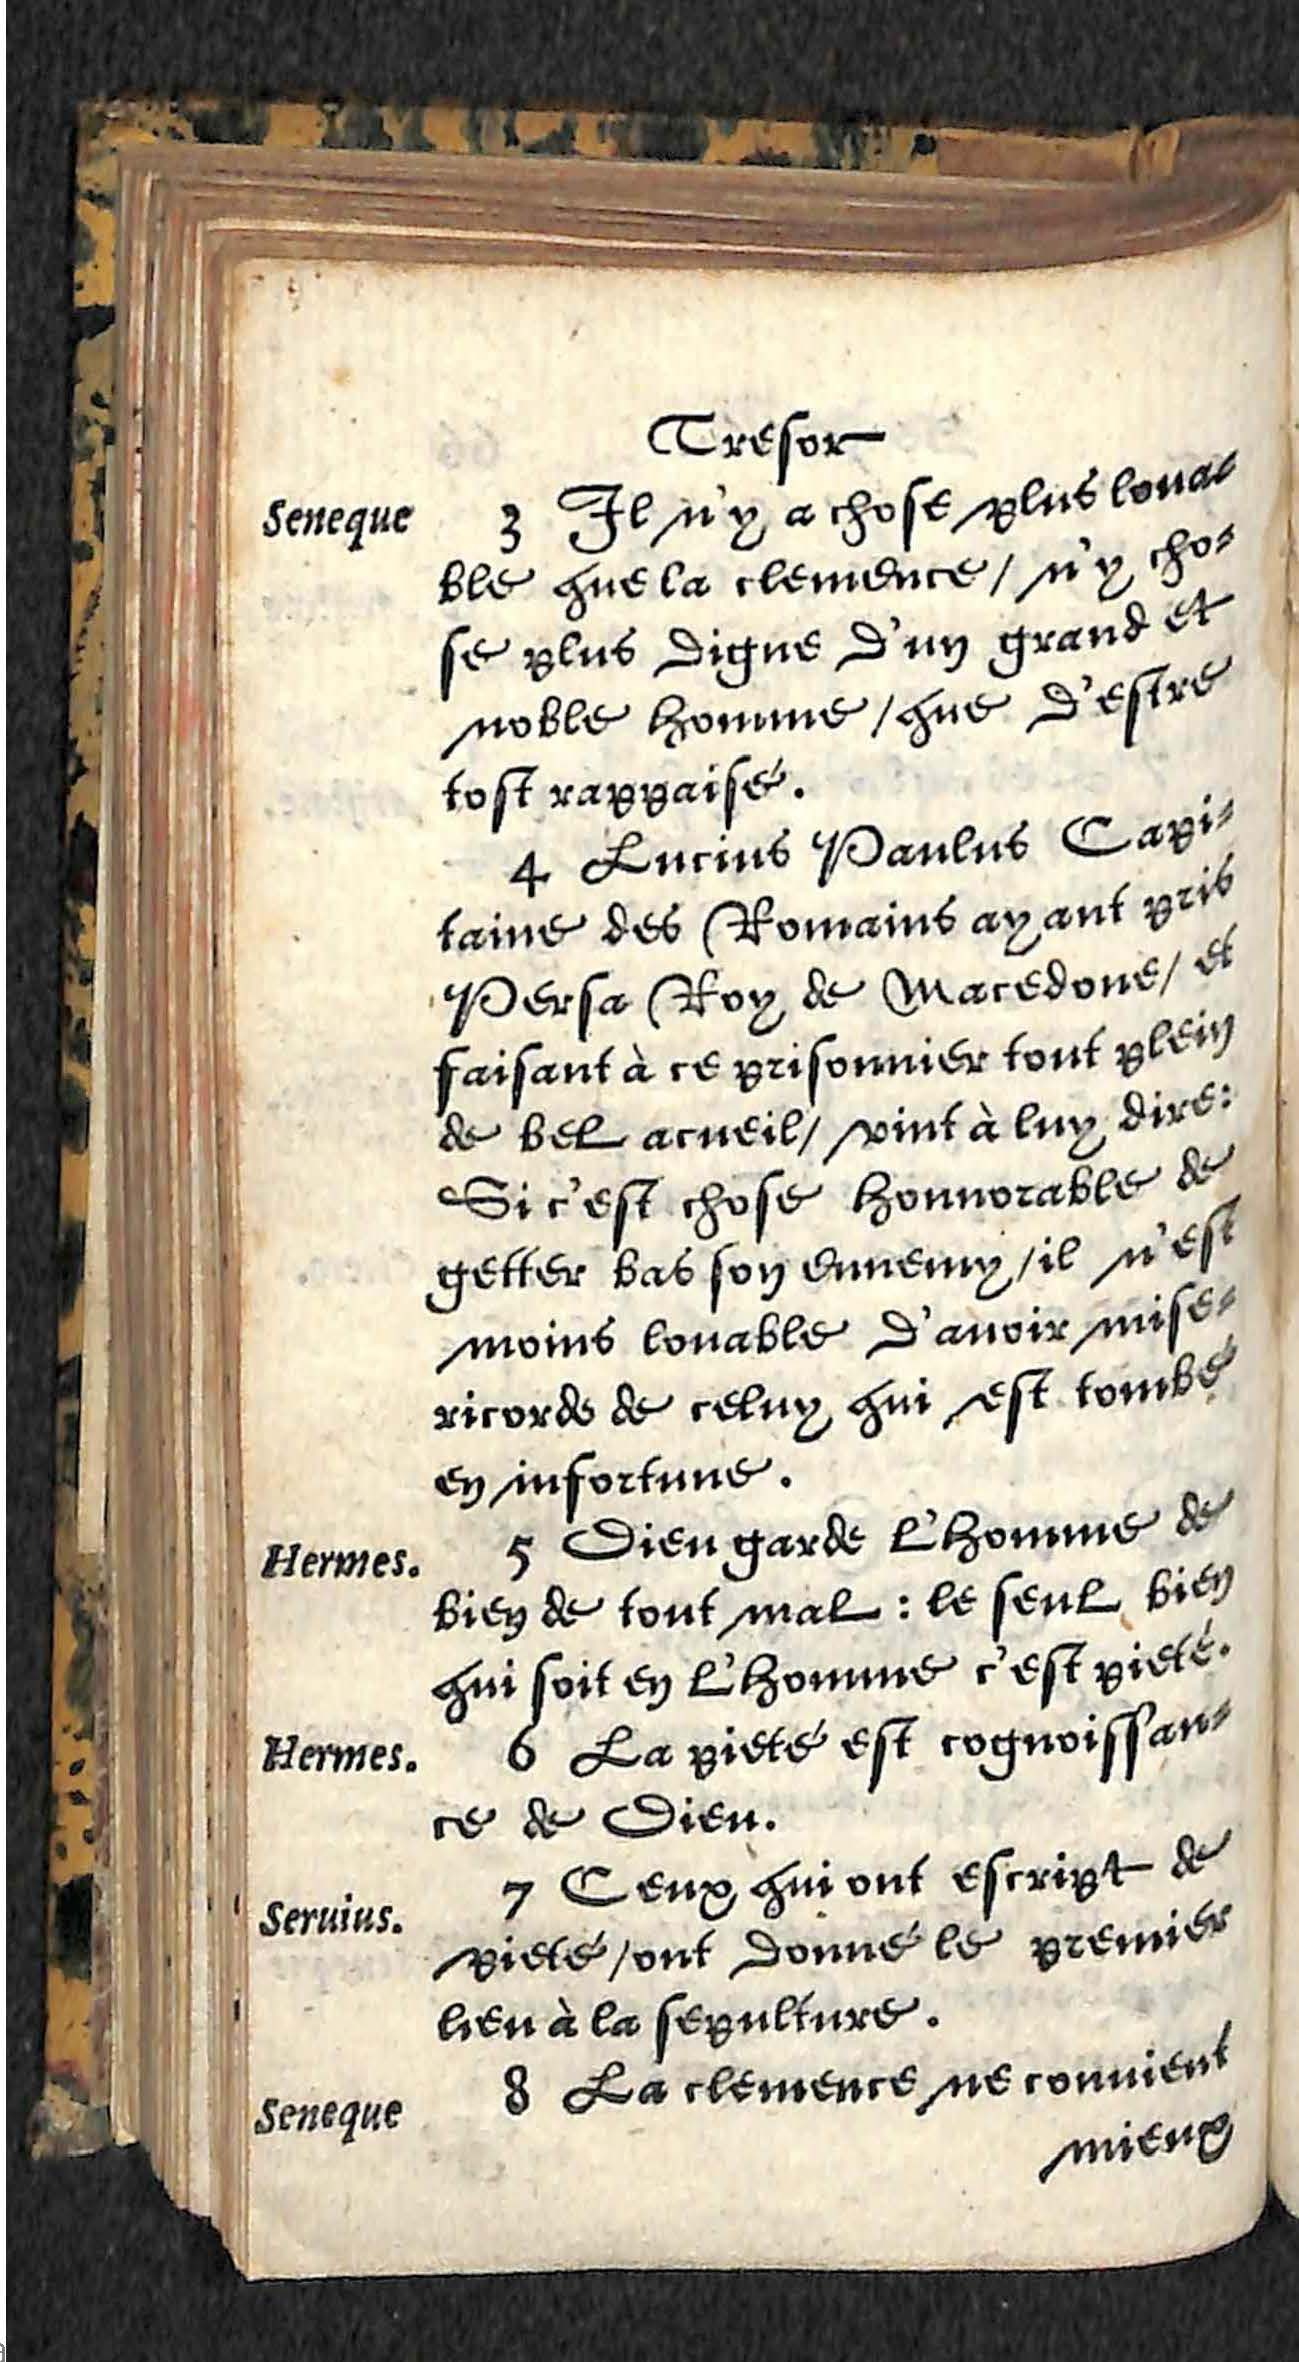 Tresor
Seneque 3 Il n'y a chose plus loua-
ble que la clemence / n'y cho-
se plus digne d'un grand et
noble homme / que d'estre
tost rappaisé.
4 Lucius Paulus Capi-
taine des Romains ayant pris
Persa Roy de Macedone / et
faisant à ce prisonnier tout plein
de bel acueil / vint à luy dire:
Si c'est chose honnorable de
getter bas son ennemy / il n'est
moins louable d'auoir mise-
ricorde de celuy qui est tombé
en infortune.
Hermes. 5 Dieu garde l'homme de
bien de tout mal : le seul bien
qui soit en l'homme c'est pieté.
Hermes. 6 La pieté est cognoissan-
ce de Dieu.
Seruius. 7 Ceux qui ont escript de
pieté / ont donné le premier
lieu à la sepulture.
Seneque 8 La clemence ne conuient
mieux